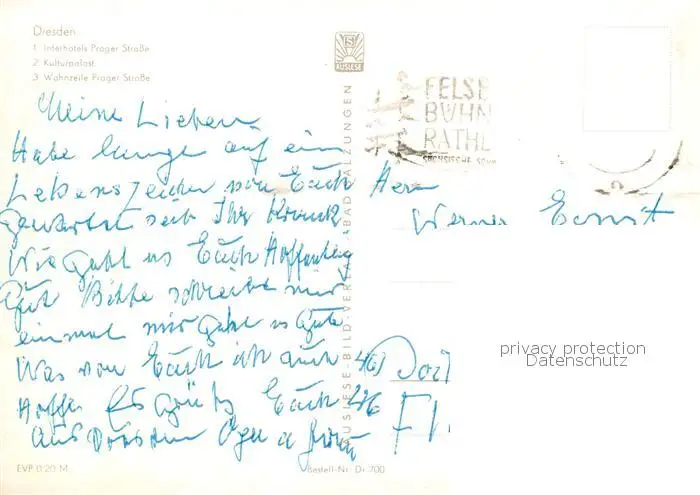 Dresden
1 Interhotels Prager Straße
2 Kulturpalast
3 Wohnzeile Prager Straße
AUSLESE
FELSE
BÜHN
RATHE
SÄCHSISCHE SCHW
AUSLESE-BILD-VERLAG BAD SALZUNGEN
Meine Lieben
Habe lange auf ein
Lebenszeichen von Euch
gewartet seit Ihr Krank
Wie geht es Euch Hoffentlig
Gut Bitte schreibt mir
einmal mir geht es Gute
Was von Euch ich auch
Hoffe Es Grüß Euch
aus Dresden
Herr
Werner Ernst
461 Dort
F
privacy protection
Datenschutz
EVP 0.20 M
Bestell-Nr. Dr 700